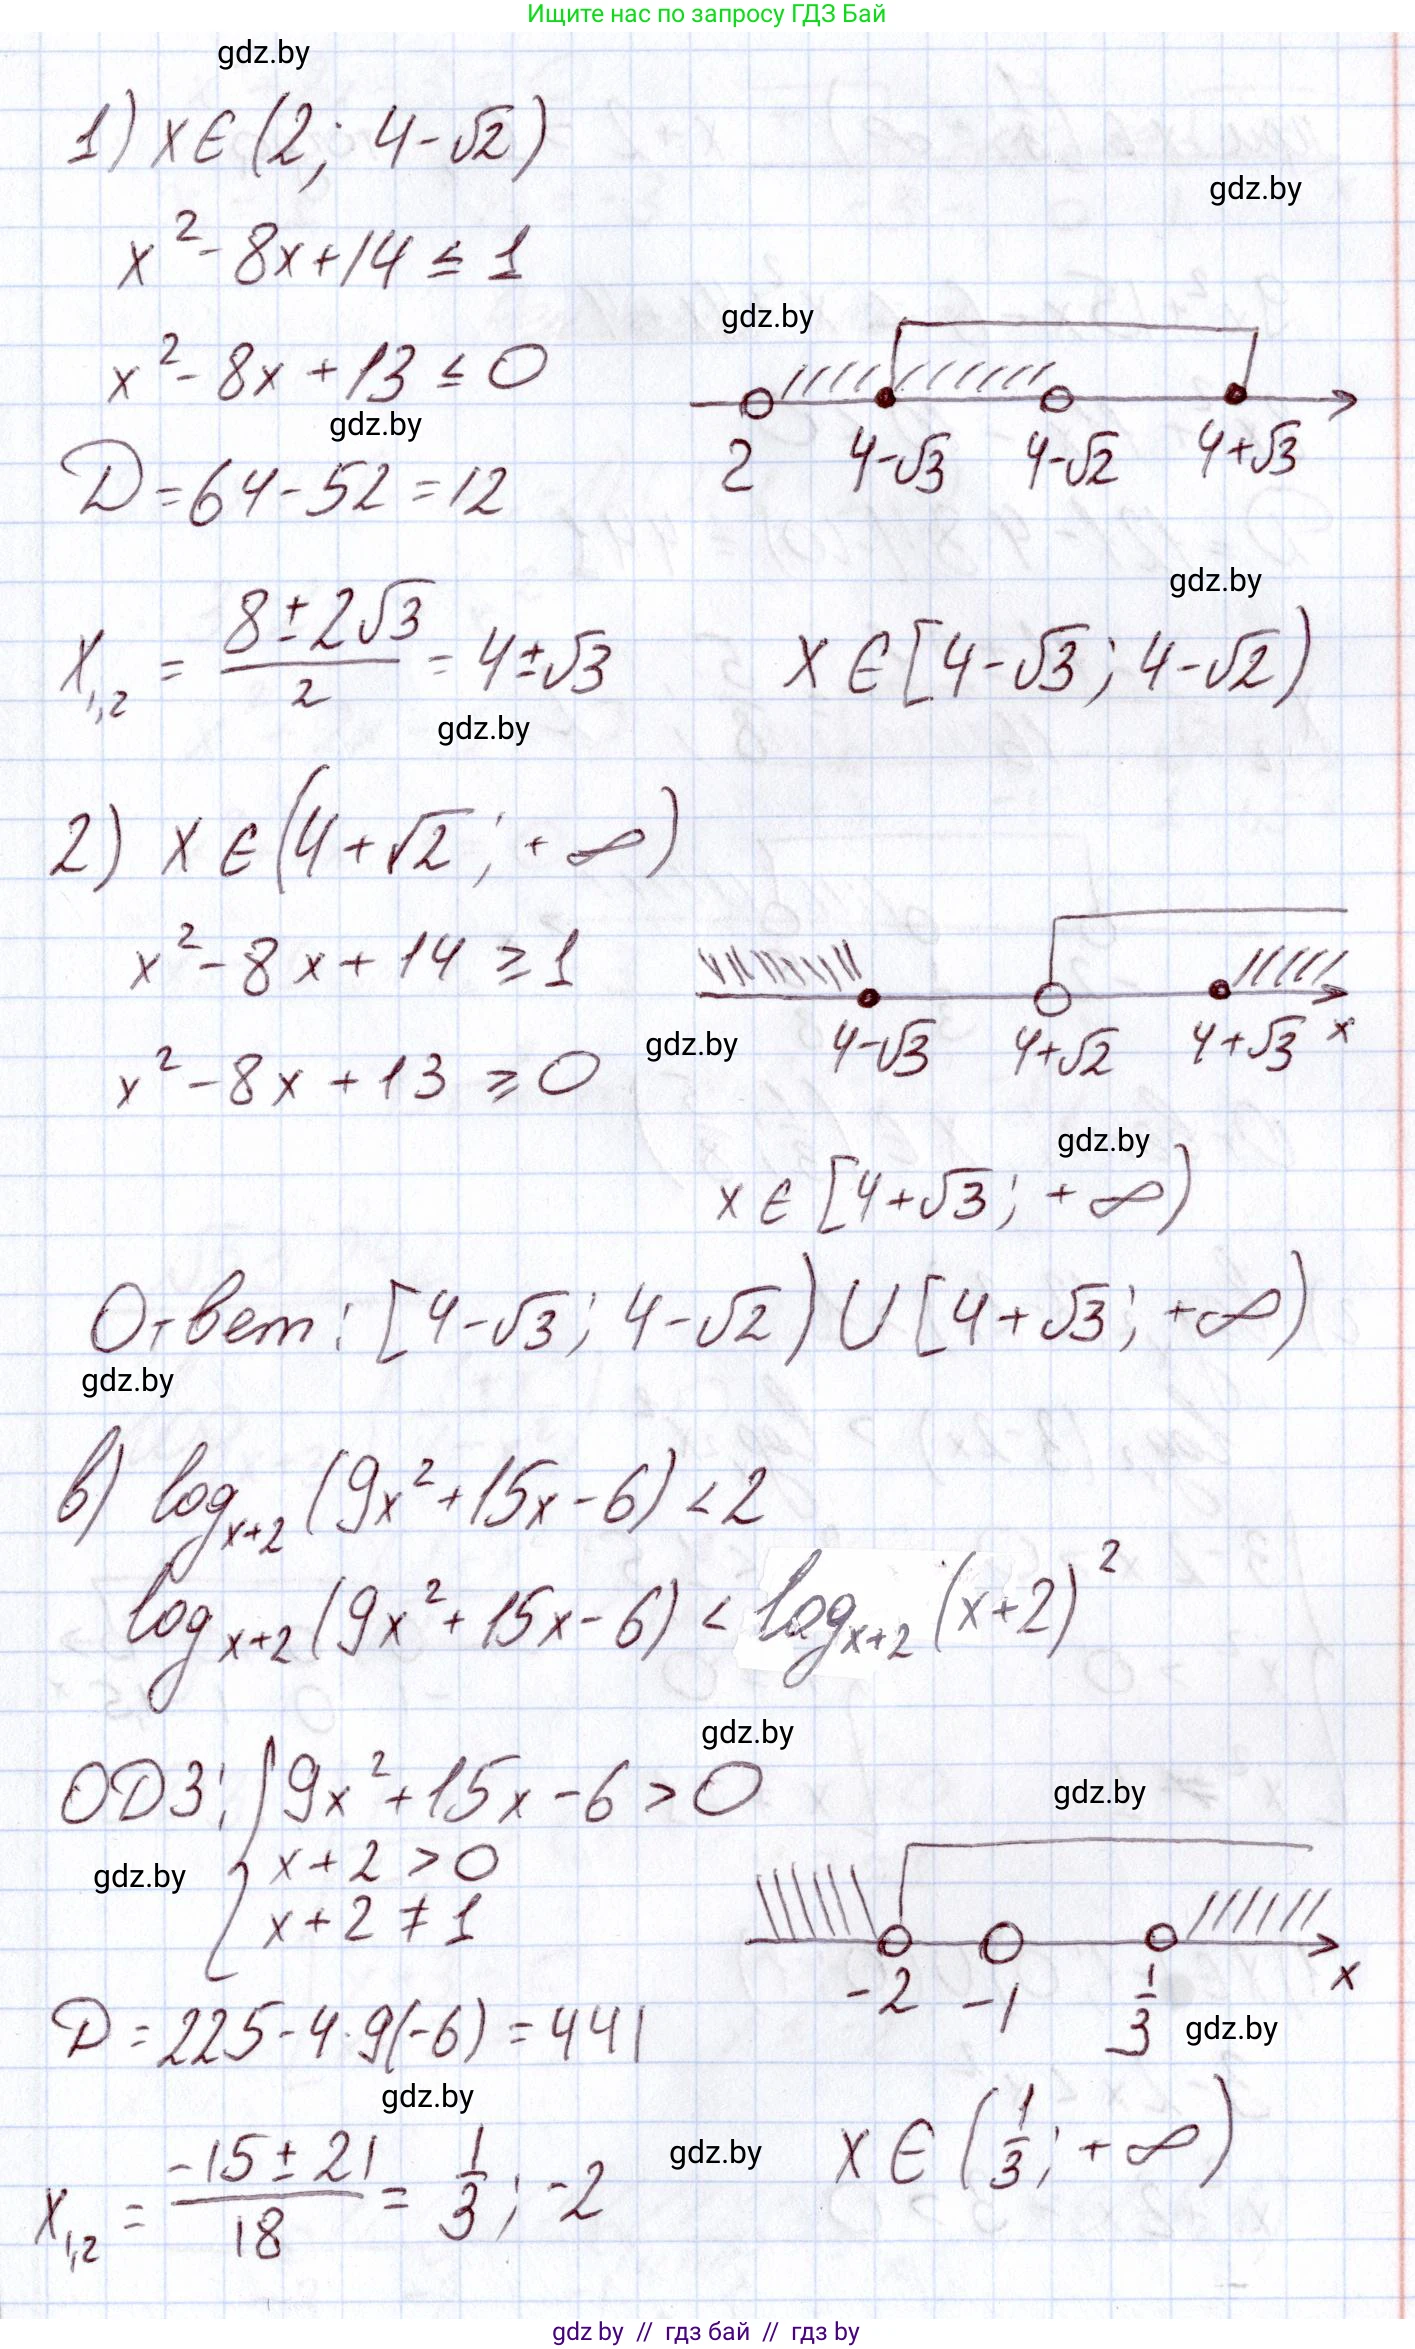 Ищите нас по запросу ГДЗ Бай
gdz.by
1) x∈(2; 4-√2)
gdz.by
x²-8x+14 ≤ 1
gdz.by
x²-8x+13 ≤ 0
gdz.by
2 4-√3 4-√2 4+√3
D=64-52=12
gdz.by
x₁,₂ = (8±2√3)/2 = 4±√3
x∈[4-√3; 4-√2)
gdz.by
2) x∈(4+√2; +∞)
x²-8x+14 ≥ 1
4-√3 4+√2 4+√3 x
gdz.by
x²-8x+13 ≥ 0
gdz.by
x∈[4+√3; +∞)
Ответ: [4-√3; 4-√2)∪[4+√3; +∞)
gdz.by
в) log_{x+2}(9x²+15x-6)<2
log_{x+2}(9x²+15x-6) < log_{x+2}(x+2)²
gdz.by
ОДЗ: { 9x²+15x-6>0
gdz.by
x+2>0
gdz.by
x+2≠1
-2 -1 1/3 x
D=225-4·9(-6)=441
gdz.by
gdz.by
x₁,₂ = (-15±21)/18 = 1/3; -2
gdz.by
x∈(1/3; +∞)
gdz.by // гдз бай // гдз by